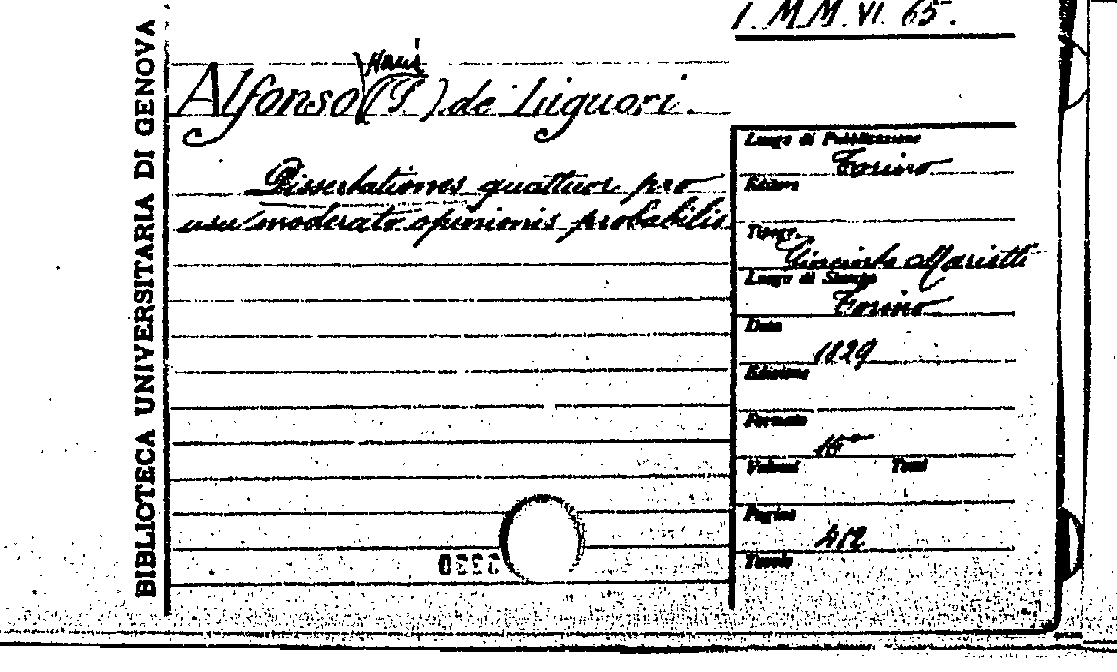 1. M.M. VI. 65.
BIBLIOTECA UNIVERSITARIA DI GENOVA
Maria
Alfonso (S.) de Liguori.
Dissertationes quattuor pro
usu moderato opinionis probabilis
Luogo di Pubblicazione
Torino
Editore
Tipogr.
Giacinto Marietti
Luogo di Stampa
Torino
Data
1829
Edizione
Formato
16°
Volumi Tomi
Pagine
412
Tavole